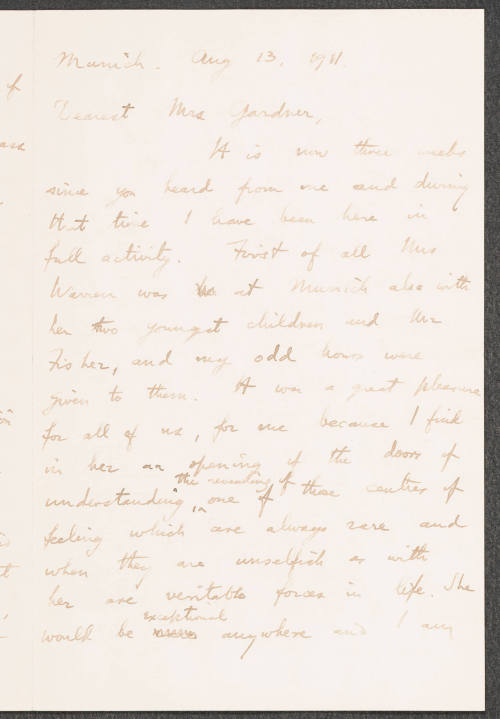 Munich. Aug 13. 1911.
Dearest Mrs Gardner,
It is now three weeks
since you heard from me and during
that time I have been here in
full activity. First of all Mrs
Warren was at Munich also with
her two youngest children and Mr
Fisher, and my odd hours were
given to them. It was a great pleasure
for all of us, for me because I find
in her an opening of the doors of
the revealing of
understanding, in one of those centres of
feeling which are always rare and
when they are unselfish as with
her are veritable forces in life. She
exceptional
would be anywhere and I am